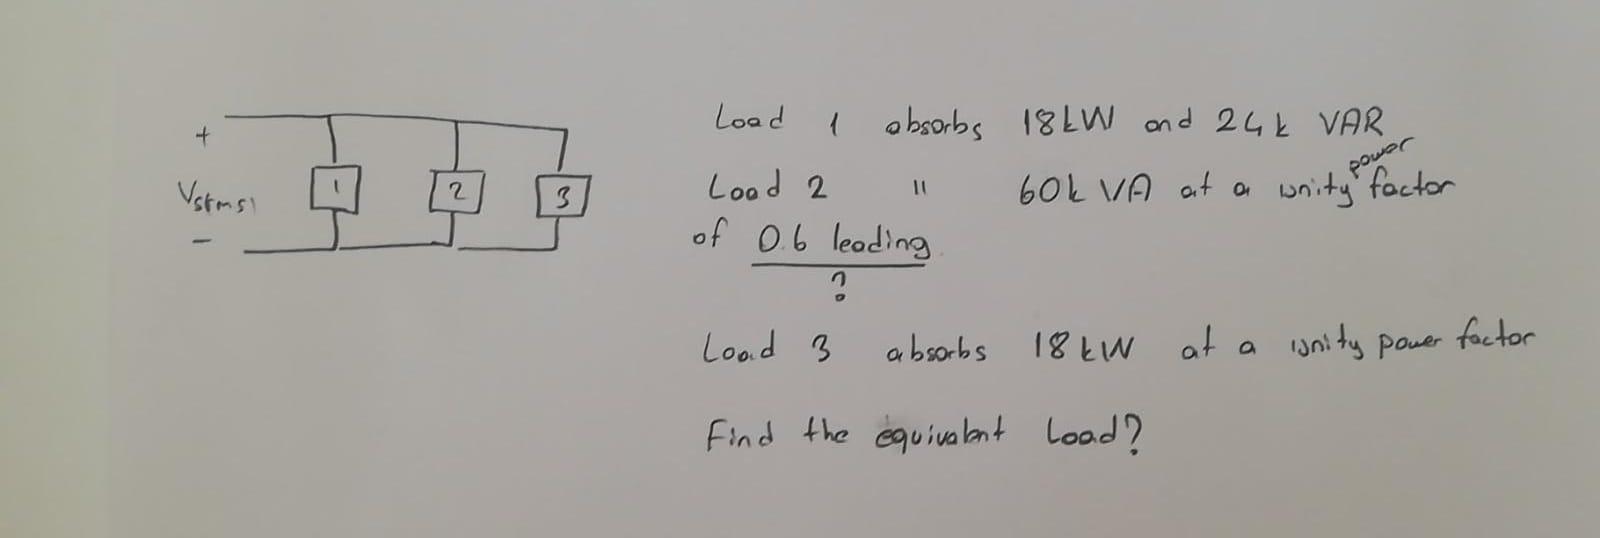 +
1
2
3
−
Load 1 absorbs 18kW and 24k VAR
Load 2 " 60k VA at a unity power factor
of 0.6 leading
?
Load 3 absorbs 18kW at a unity power factor
Find the equivalent Load?